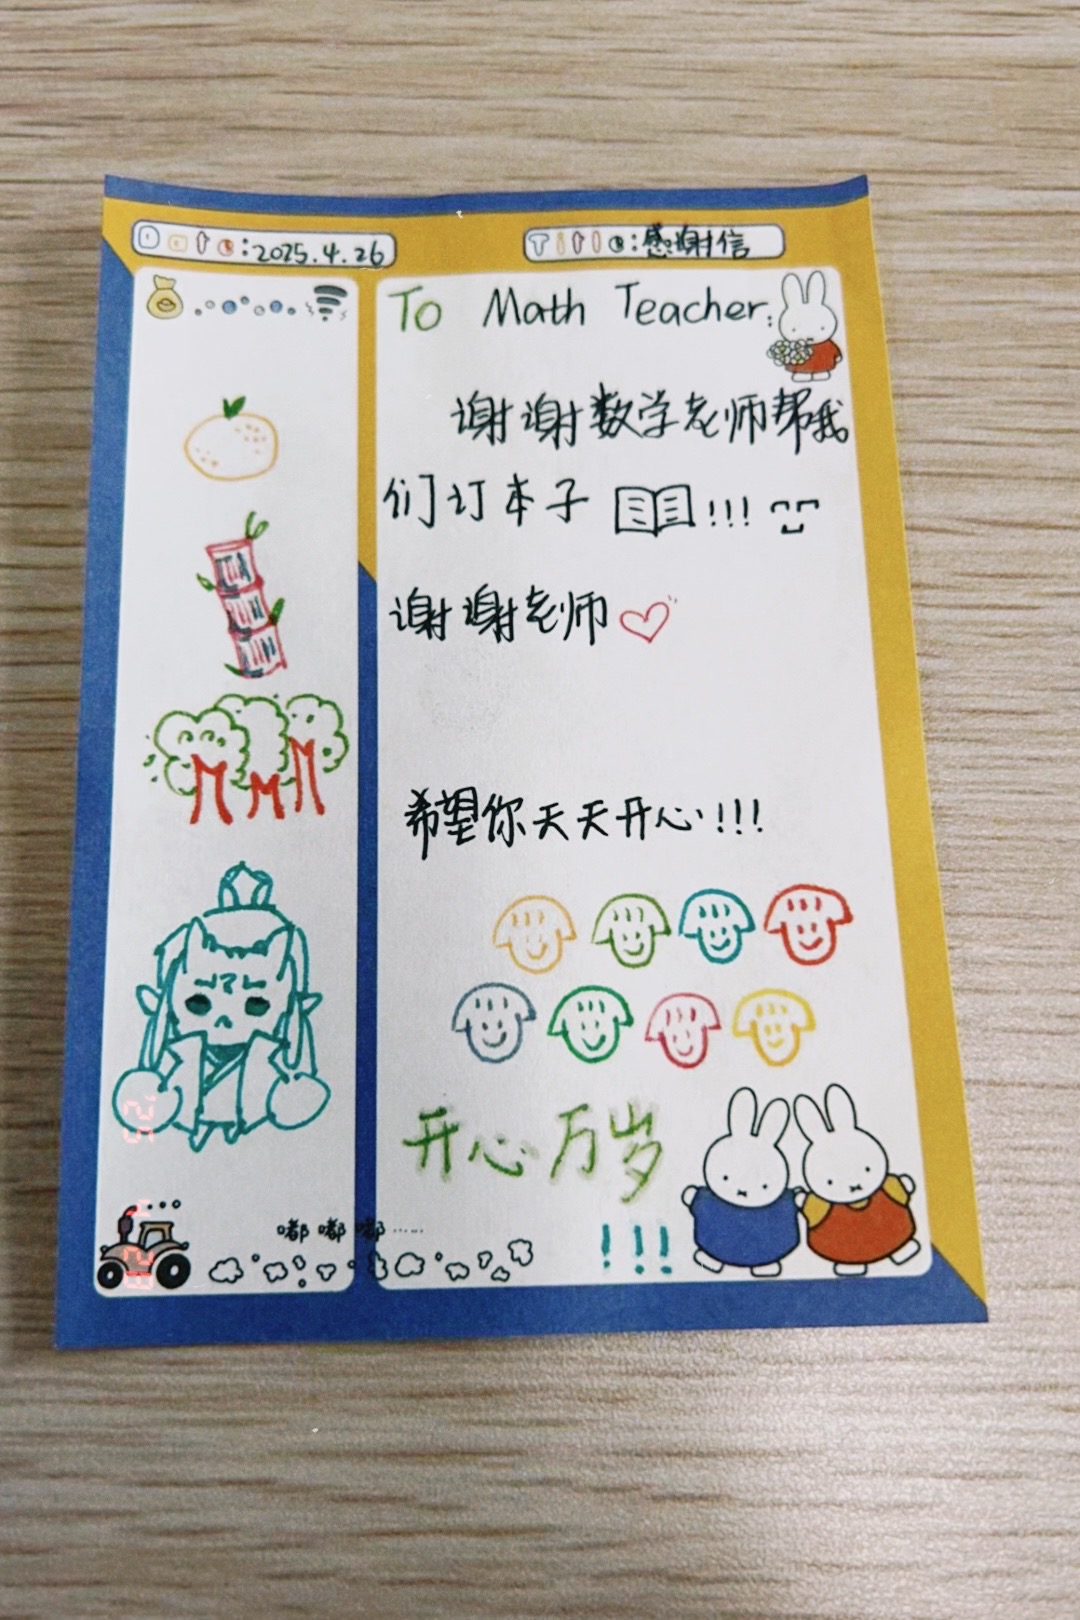 Date:2025.4.26
Title:感谢信
To Math Teacher:
谢谢数学老师帮我
们订本子 !!!
谢谢老师
希望你天天开心!!!
开心万岁
!!!
嘟嘟嘟……